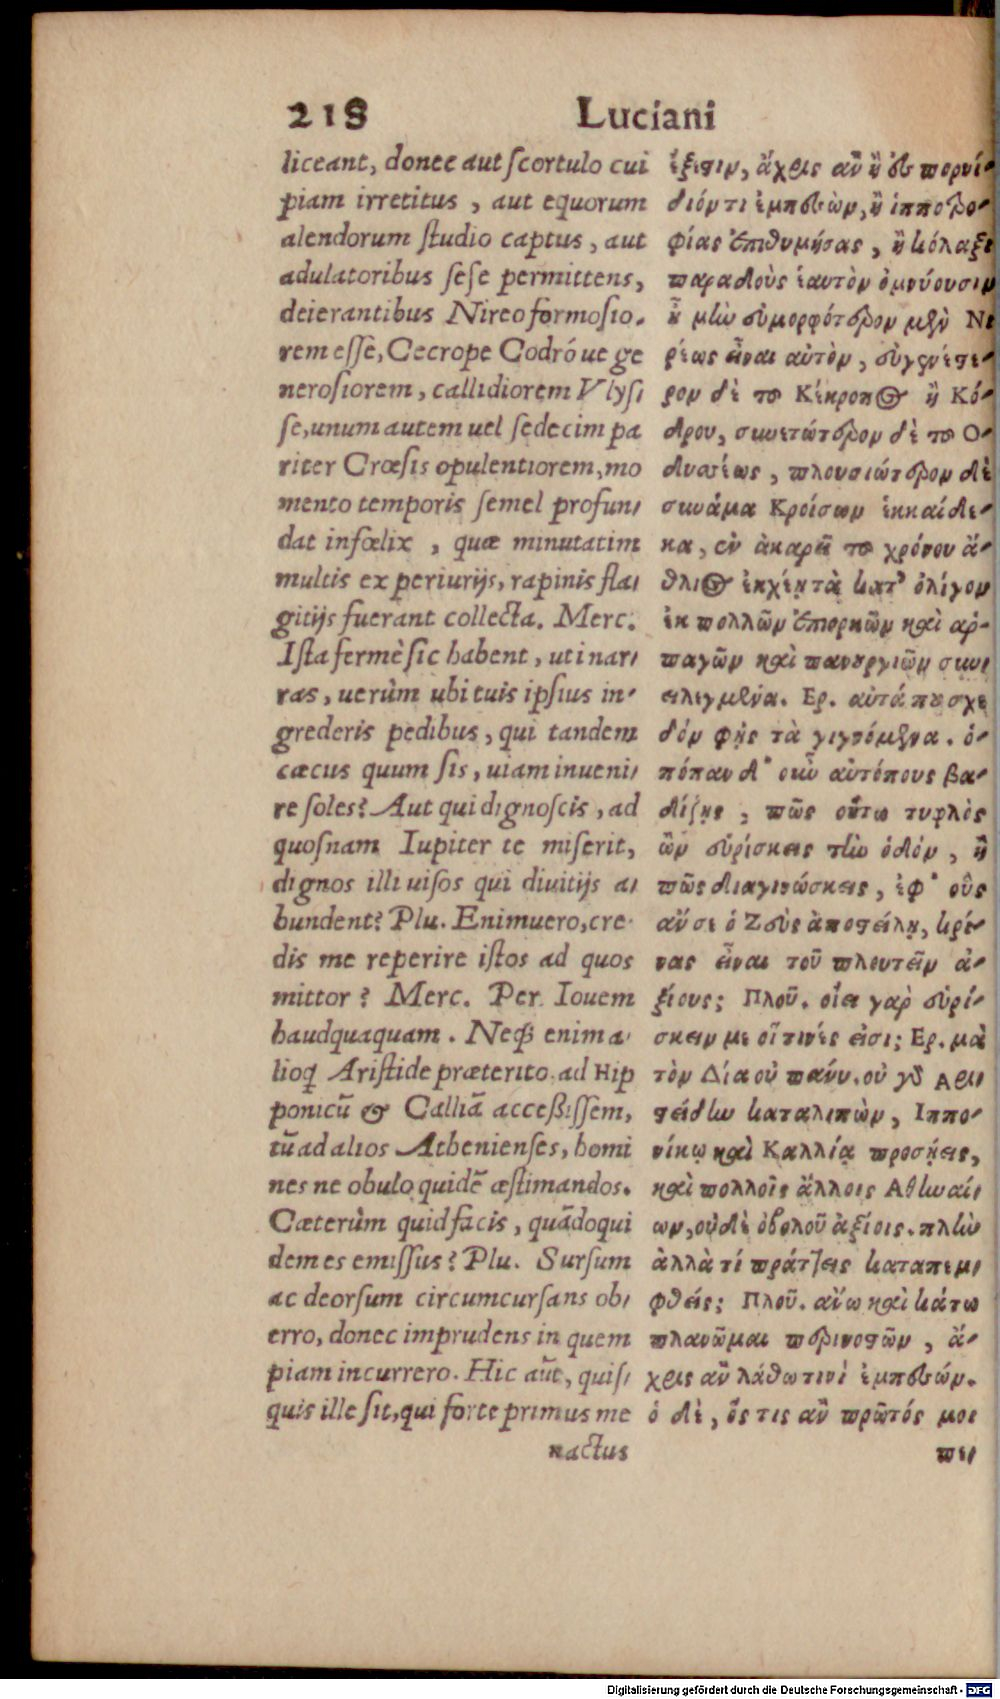 218 Luciani
liceant, donec aut ſcortulo cui
piam irretitus, aut equorum
alendorum ſtudio captus, aut
adulatoribus ſeſe permittens,
deierantibus Nireo formoſio-
rem eſſe, Cecrope Codróue ge
neroſiorem, callidiorem Vlyſſi
ſe, unum autem uel ſedecim pa
riter Crœſis opulentiorem, mo
mento temporis ſemel profun-
dat infœlix, quæ minutatim
multis ex periurijs, rapinis fla-
gitijs fuerant collecta. Merc.
Iſta fermè ſic habent, uti nar-
ras, uerùm ubi tuis ipſius in-
grederis pedibus, qui tandem
cæcus quum ſis, uiam inueni-
re ſoles? Aut qui dignoſcis, ad
quoſnam Iupiter te miſerit,
dignos illi uiſos qui diuitijs a-
bundent? Plu. Enimuero, cre-
dis me reperire iſtos ad quos
mittor? Merc. Per Iouem
haudquaquam. Neq; enim a-
lioq̃ Ariſtide præterito ad Hip
ponicũ & Calliã acceßiſſem,
tũ ad alios Athenienſes, homi
nes ne obulo quidẽ æſtimandos.
Cæterùm quid facis, quãdoqui
dem es emiſſus? Plu. Surſum
ac deorſum circumcurſans ob-
erro, donec imprudens in quem
piam incurrero. Hic aũt, quiſ-
quis ille ſit, qui forte primus me
nactus
ἔξεστιν, ἄχρις ἂν ἢ ἐς πορνί-
διόν τι ἐμπεσὼν, ἢ ἱπποτρο-
φίας ἐπιθυμήσας, ἢ κόλαξι
παραδοὺς ἑαυτὸν ὀμνύουσιν
ἦ μὴν εὐμορφότερον μὲν Νι
ρέως εἶναι αὐτὸν, εὐγενέστε-
ρον δὲ τοῦ Κέκροπος ἢ Κό-
δρου, συνετώτερον δὲ τοῦ Ο-
δυσσέως, πλουσιώτερον δὲ
συνάμα Κροίσων ἑκκαίδε-
κα, ἐν ἀκαρεῖ τοῦ χρόνου ἄ-
θλιος ἐκχέῃ τὰ κατ' ὀλίγον
ἐκ πολλῶν ἐπιορκιῶν καὶ ἁρ-
παγῶν καὶ πανουργιῶν συνε
ειλεγμένα. Ερ. αὐτά που σχε
δόν φῂς τὰ γιγνόμενα. ὁ-
πόταν δ' οὖν αὐτόπους βα-
δίζῃς, πῶς οὕτω τυφλὸς
ὢν εὑρίσκεις τὴν ὁδόν, ἢ
πῶς διαγινώσκεις, ἐφ' οὓς
ἄν σε ὁ Ζεὺς ἀποστείλῃ, κρί-
νας εἶναι τοῦ πλουτεῖν ἀ-
ξίους; Πλοῦ. οἴει γὰρ εὑρί-
σκειν με οἵτινές εἰσι; Ερ. μὰ
τὸν Δία οὐ πάνυ. οὐ γὰρ Αρι-
στείδην καταλιπὼν, Ιππο-
νίκῳ καὶ Καλλίᾳ προσῄεις,
καὶ πολλοῖς ἄλλοις Αθηναί-
ων, οὐδὲ ὀβολοῦ ἀξίοις. πλὴν
ἀλλὰ τί πράττεις καταπεμ-
φθείς; Πλοῦ. ἄνω καὶ κάτω
πλανῶμαι περινοστῶν, ἄ-
χρις ἂν λάθω τινὶ ἐμπεσών.
ὁ δὲ, ὅς τις ἂν πρῶτός μοι
πε-
Digitalisierung gefördert durch die Deutsche Forschungsgemeinschaft - DFG